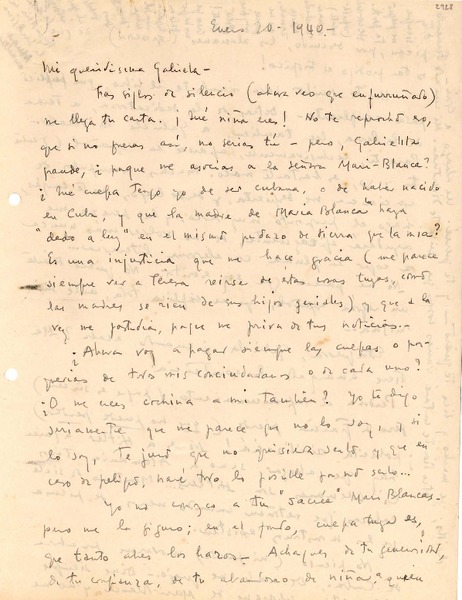 2928
Enero 20 - 1940.-
Mi queridísima Gabriela -
Tras siglos de silencio (ahora veo que enfurruñado)
me llega tu carta. ¡Qué niña eres! No te reprocho, no,
que si no fueras así, no serías tú - pero, Gabrielita
grande, ¿porque me asocias a la señora Mari-Blanca?
¿Qué culpa tengo yo de ser cubana, o de haber nacido
en Cuba, y que la madre de María Blanca la haya
"dado a luz" en el mismo pedazo de tierra que la mía?
Es una injusticia que me hace gracia (me parece
siempre ver a Teresa reirse de estas cosas tuyas, como
las madres se rien de sus hijos geniales) y que a la
vez me fastidia, porque me priva de tus noticias.-
¿Ahora voy a pagar siempre las culpas o por-
querias de todos mis conciudadanos o de cada uno?
¿O me crees cochina a mí también? Yo te digo
seriamente que me parece que no lo soy, y si
lo soy, te juro que no quisiera serlo y que en
caso de peligro, haré todo lo posible por no serlo...
Yo no conozco a tu "sacrée" Mari Blanca -
pero me la figuro; en el fondo, culpa tuya es,
que tanto abres los brazos - Achaques de tu generosidad,
de tu confianza, de tu abandono de niña a quien